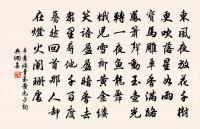 東風夜放花千樹
更吹落星如雨
寶馬雕車香滿路
鳳簫聲動玉壺光
轉一夜魚龍舞
蛾兒雪柳黃金縷
笑語盈盈暗香去
衆裏尋他千百度
驀然回首那人却
在燈火闌珊處
辛棄疾青玉案元夕